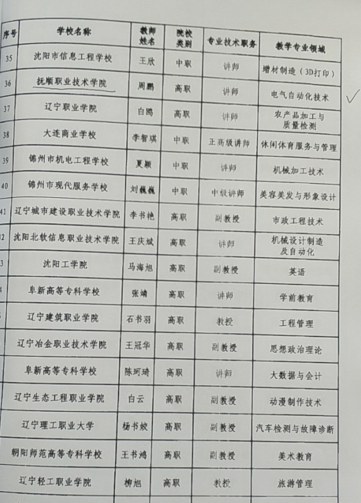 序号 学校名称 教师姓名 院校类别 专业技术职务 教学专业领域
35 沈阳市信息工程学校 王欣 中职 讲师 增材制造（3D打印）
36 抚顺职业技术学院 周鹏 高职 讲师 电气自动化技术
37 辽宁职业学院 白鸥 高职 讲师 农产品加工与质量检测
38 大连商业学校 李智琪 中职 正高级讲师 休闲体育服务与管理
39 锦州市机电工程学校 夏颖 中职 讲师 机械加工技术
40 锦州市现代服务学校 刘巍巍 中职 中级讲师 美容美发与形象设计
41 辽宁城市建设职业技术学院 李书艳 高职 副教授 市政工程技术
2 沈阳北软信息职业技术学院 王庆斌 高职 讲师 机械设计制造及自动化
3 沈阳工学院 马海旭 高职 副教授 英语
4 阜新高等专科学校 张婧 高职 讲师 学前教育
辽宁建筑职业学院 石书羽 高职 教授 工程管理
辽宁冶金职业技术学院 王冠华 高职 副教授 思想政治理论
阜新高等专科学校 陈珂琦 高职 讲师 大数据与会计
辽宁生态工程职业学院 白云 高职 副教授 动漫制作技术
辽宁理工职业大学 杨书姣 高职 副教授 汽车检测与故障诊断
朝阳师范高等专科学校 王书鸿 高职 副教授 美术教育
辽宁轻工职业学院 柳旭 高职 教授 旅游管理